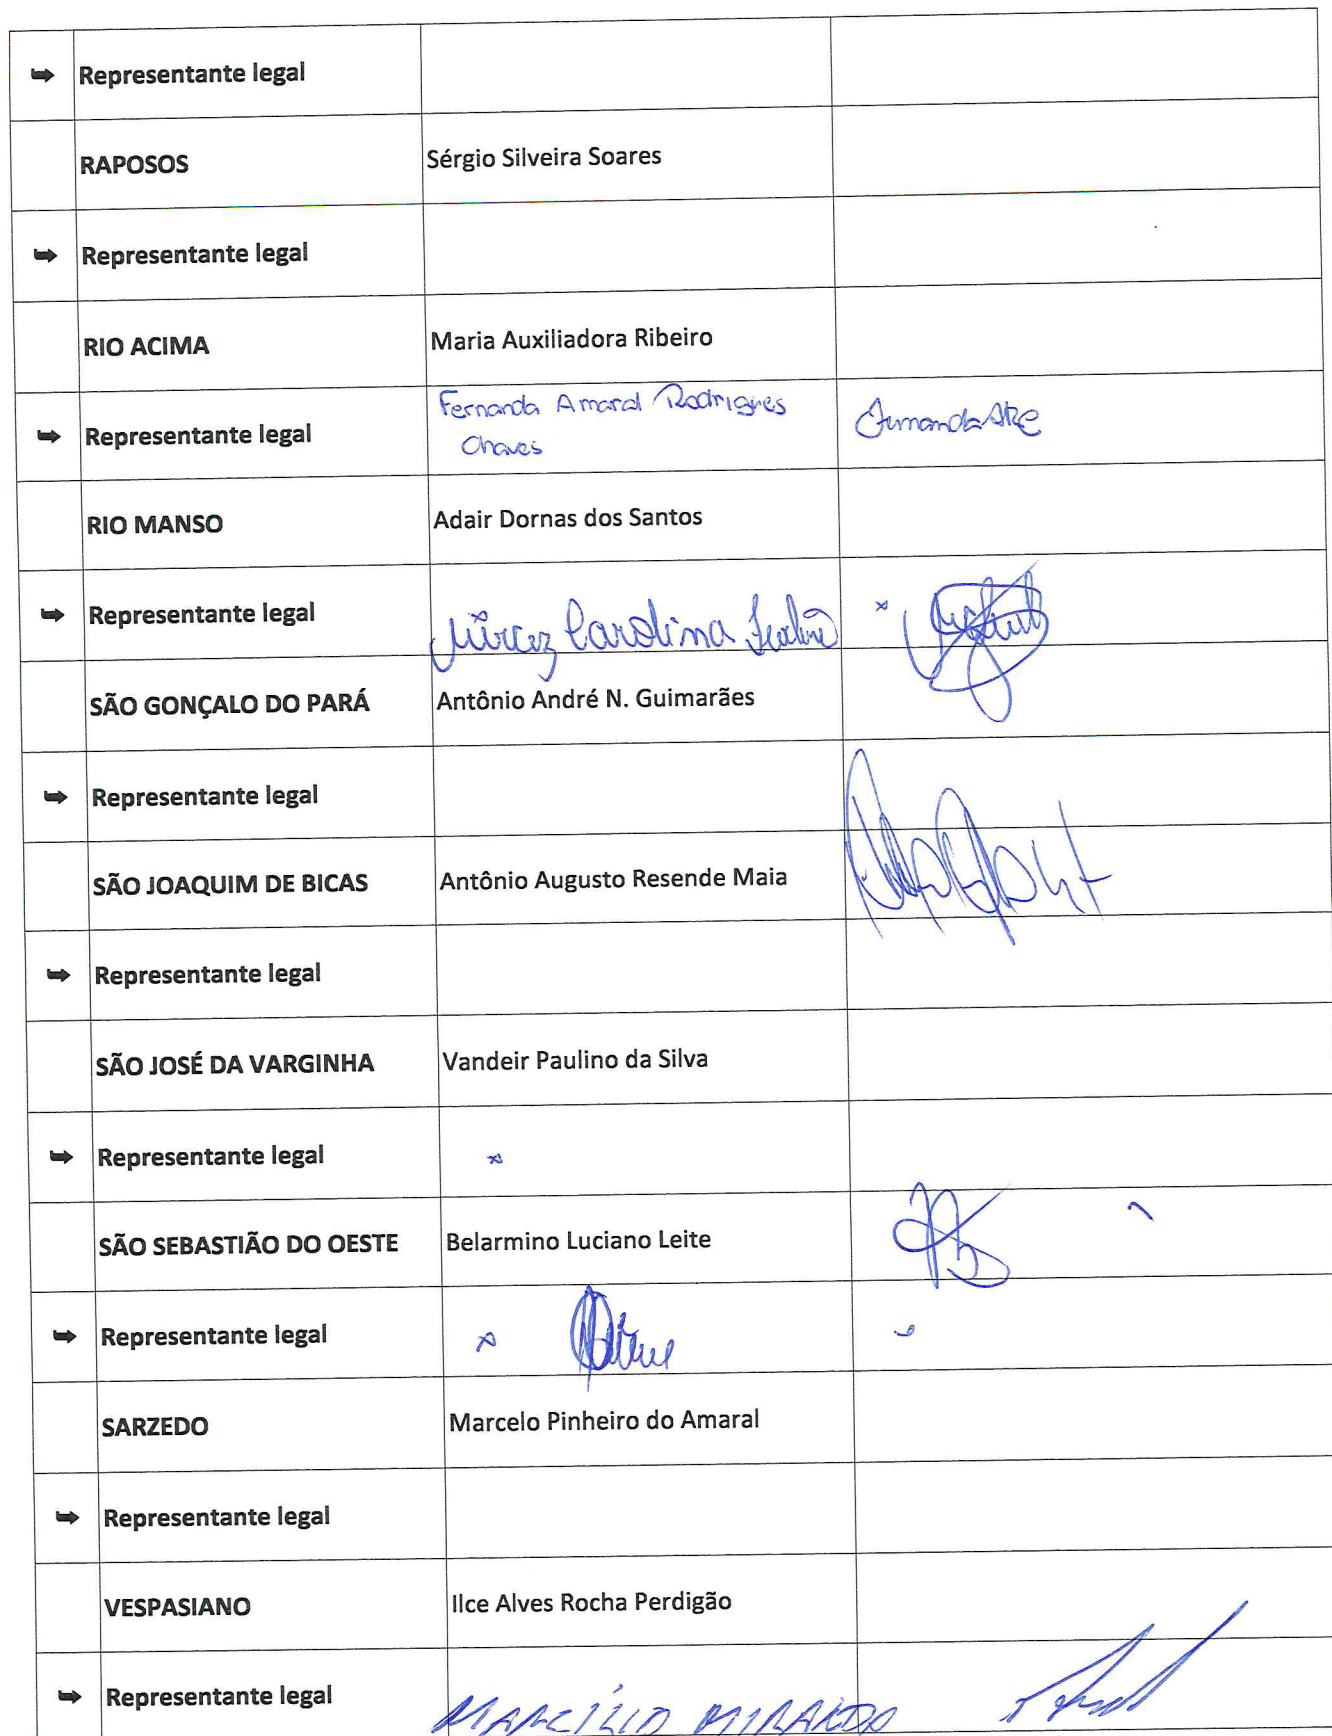 Representante legal
RAPOSOS Sérgio Silveira Soares
Representante legal
RIO ACIMA Maria Auxiliadora Ribeiro
Representante legal Fernanda Amaral Rodrigues
Chaves
RIO MANSO Adair Dornas dos Santos
Representante legal Carolina
SÃO GONÇALO DO PARÁ Antônio André N. Guimarães
Representante legal
SÃO JOAQUIM DE BICAS Antônio Augusto Resende Maia
Representante legal
SÃO JOSÉ DA VARGINHA Vandeir Paulino da Silva
Representante legal
SÃO SEBASTIÃO DO OESTE Belarmino Luciano Leite
Representante legal
SARZEDO Marcelo Pinheiro do Amaral
Representante legal
VESPASIANO Ilce Alves Rocha Perdigão
Representante legal